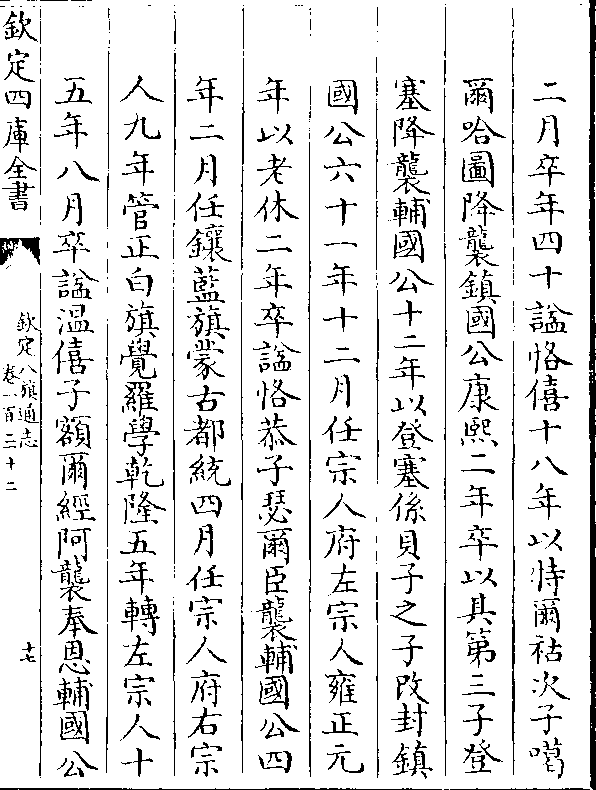 二月卒年四十諡恪僖十八年以恃爾祜次子噶
爾哈圖降襲鎮國公康熙二年卒以其第三子登
塞降襲輔國公十二年以登塞係貝子之子改封鎮
國公六十一年十二月任宗人府左宗人雍正元
年以老休二年卒諡恪恭子瑟爾臣襲輔國公四
年二月任鑲藍旗蒙古都統四月任宗人府右宗
人九年管正白旗覺羅學乾隆五年轉左宗人十
五年八月卒諡温僖子額爾經阿襲奉恩輔國公
欽定四庫全書
欽定八旗通志
卷一百三十二
十七